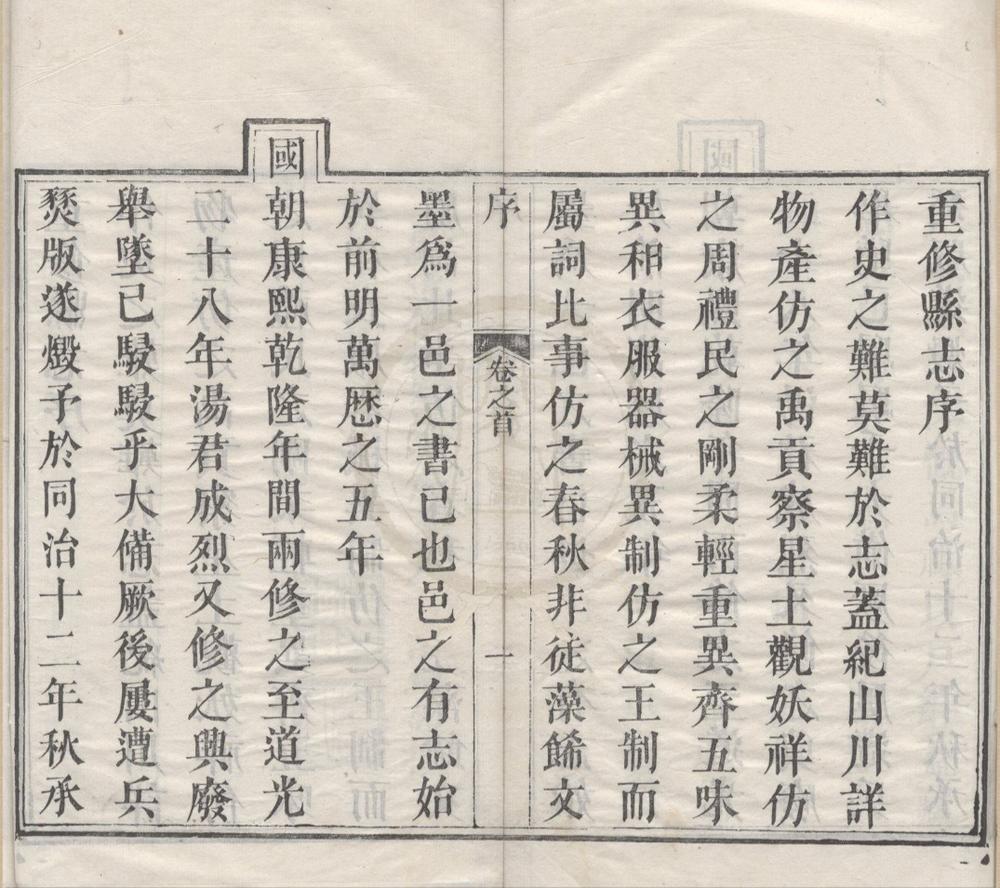 重修縣志序
作史之難莫難於志蓋紀山川詳
物產仿之禹貢察星土觀妖祥仿
之周禮民之剛柔輕重異齊五味
異和衣服器械異制仿之王制而
屬詞比事仿之春秋非徒藻餙文
序
卷之首
一
墨爲一邑之書已也邑之有志始
於前明萬厯之五年
國朝康熙乾隆年間兩修之至道光
二十八年湯君成烈又修之興廢
舉墜已駸駸乎大備厥後屢遭兵
燹版遂燬予於同治十二年秋承